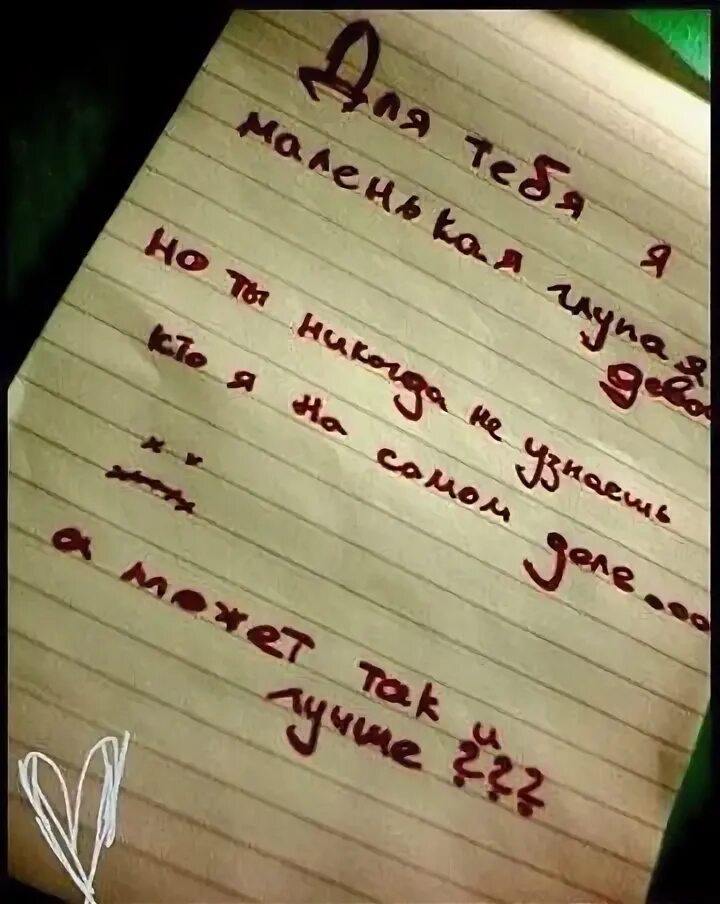 Для тебя я
маленькая глупая
дево
Но ты никогда не узнаешь
кто я на самом деле....
а может так и
лучше ???